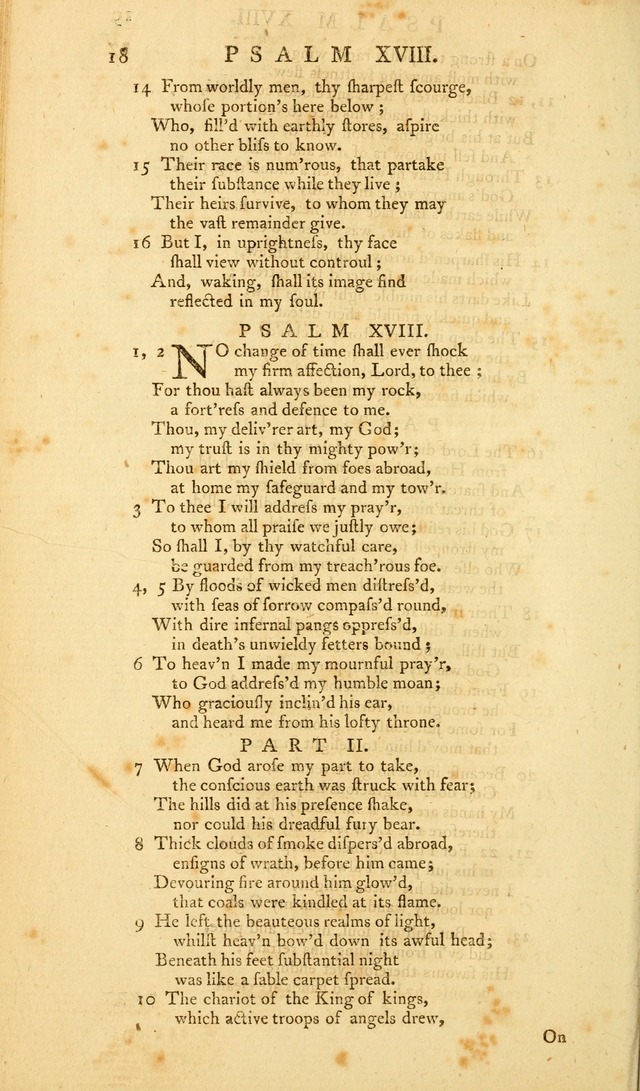 18 PSALM XVIII.
14 From worldly men, thy ſharpeſt ſcourge,
whoſe portion's here below ;
Who, fill'd with earthly ſtores, aſpire
no other bliſs to know.
15 Their race is num'rous, that partake
their ſubſtance while they live ;
Their heirs ſurvive, to whom they may
the vaſt remainder give.
16 But I, in uprightneſs, thy face
ſhall view without controul ;
And, waking, ſhall its image find
reflected in my ſoul.
PSALM XVIII.
1, 2 NO change of time ſhall ever ſhock
my firm affection, Lord, to thee ;
For thou haſt always been my rock,
a fort'reſs and defence to me.
Thou, my deliv'rer art, my God;
my truſt is in thy mighty pow'r;
Thou art my ſhield from foes abroad,
at home my ſafeguard and my tow'r.
3 To thee I will addreſs my pray'r,
to whom all praiſe we juſtly owe;
So ſhall I, by thy watchful care,
be guarded from my treach'rous foe.
4, 5 By floods of wicked men diſtreſs'd,
with ſeas of ſorrow compaſs'd round,
With dire infernal pangs oppreſs'd,
in death's unwieldy fetters bound ;
6 To heav'n I made my mournful pray'r,
to God addreſs'd my humble moan;
Who graciouſly inclin'd his ear,
and heard me from his lofty throne.
PART II.
7 When God aroſe my part to take,
the conſcious earth was ſtruck with fear;
The hills did at his preſence ſhake,
nor could his dreadful fury bear.
8 Thick clouds of ſmoke diſpers'd abroad,
enſigns of wrath, before him came;
Devouring fire around him glow'd,
that coals were kindled at its flame.
9 He left the beauteous realms of light,
whilſt heav'n bow'd down its awful head;
Beneath his feet ſubſtantial night
was like a ſable carpet ſpread.
10 The chariot of the King of kings,
which active troops of angels drew,
On